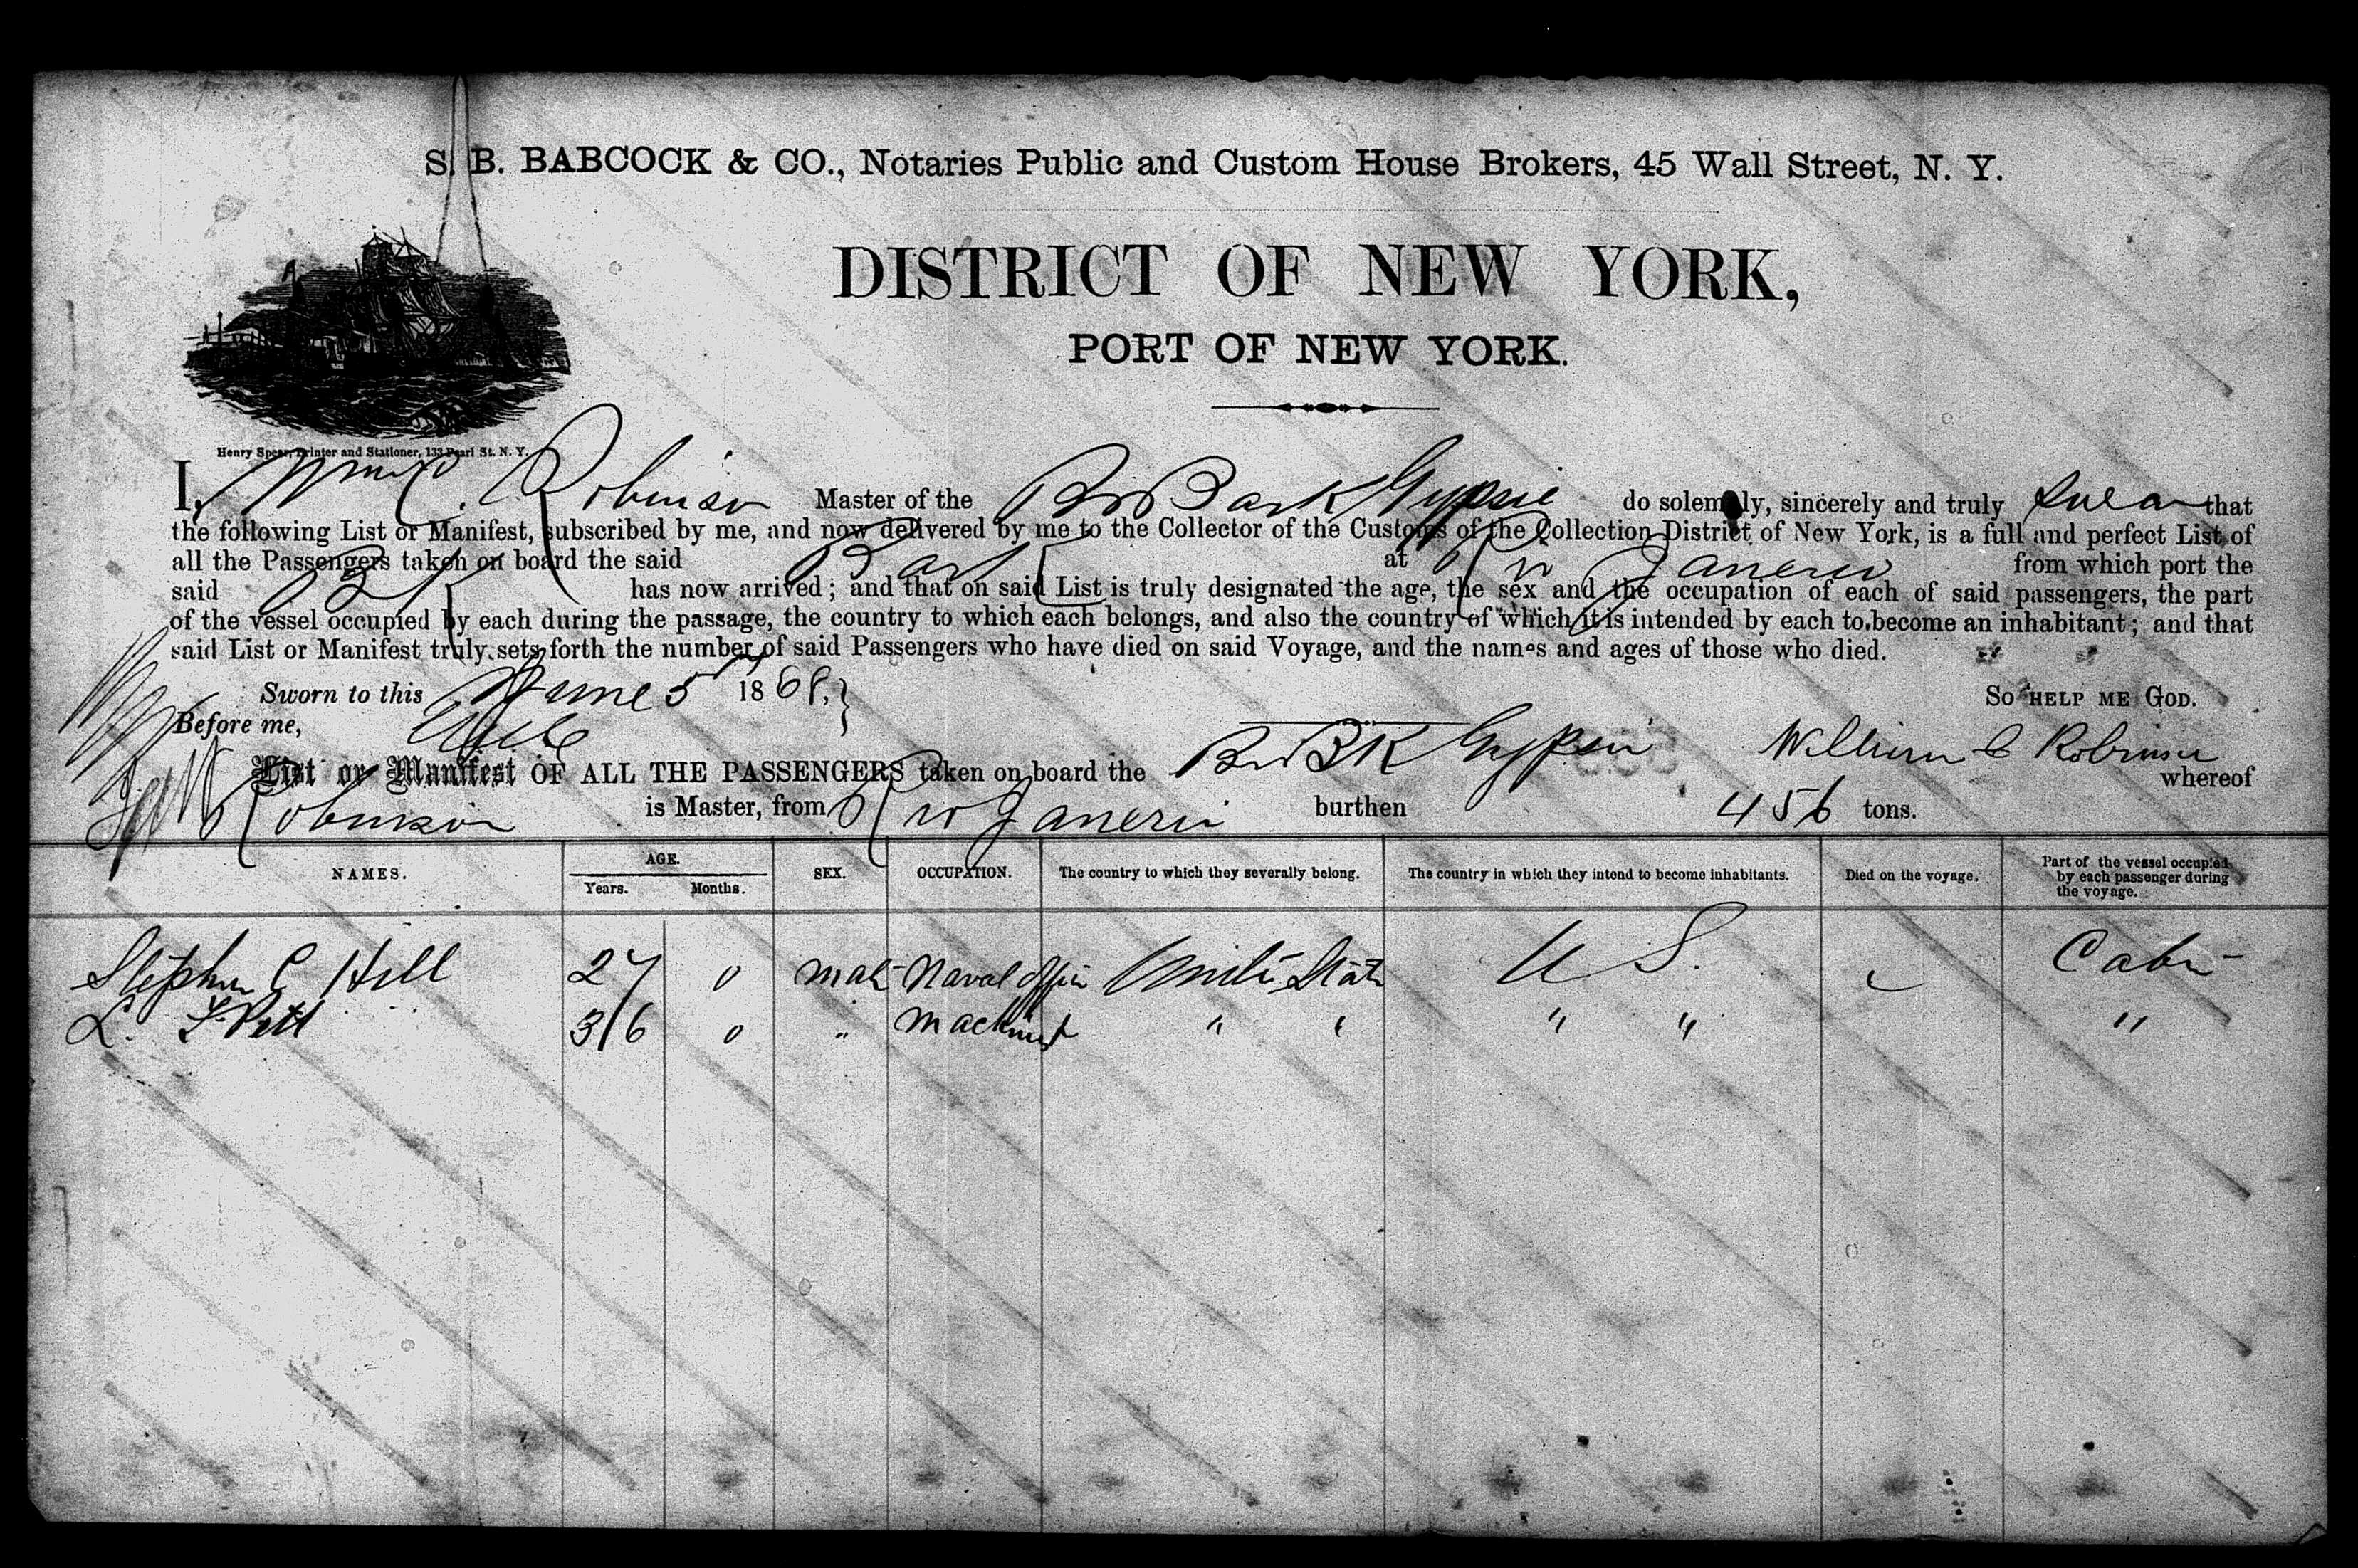 S. B. BABCOCK & CO., Notaries Public and Custom House Brokers, 45 Wall Street, N. Y.
DISTRICT OF NEW YORK,
PORT OF NEW YORK.
Henry Spear, Printer and Stationer, 133 Pearl St. N. Y.
I, Wm C. Robinson Master of the Br Bark Gypsie do solemnly, sincerely and truly swear that
the following List or Manifest, subscribed by me, and now delivered by me to the Collector of the Customs of the Collection District of New York, is a full and perfect List of
all the Passengers taken on board the said Bark at Rio Janerio from which port the
said BK has now arrived; and that on said List is truly designated the age, the sex and the occupation of each of said passengers, the part
of the vessel occupied by each during the passage, the country to which each belongs, and also the country of which it is intended by each to become an inhabitant; and that
said List or Manifest truly sets forth the number of said Passengers who have died on said Voyage, and the names and ages of those who died.
Sworn to this June 5 1868, SO HELP ME GOD.
Before me,
List or Manifest OF ALL THE PASSENGERS taken on board the Br BK Gypsie William C Robinson whereof
Robinson is Master, from Rio Janerio burthen 456 tons.
NAMES. AGE. Years. Months. SEX. OCCUPATION. The country to which they severally belong. The country in which they intend to become inhabitants. Died on the voyage. Part of the vessel occupied by each passenger during the voyage.
Stephen C Hill 27 0 male Naval Offic United State U S. Cabin
L. 36 0 " Machinist " " " " "